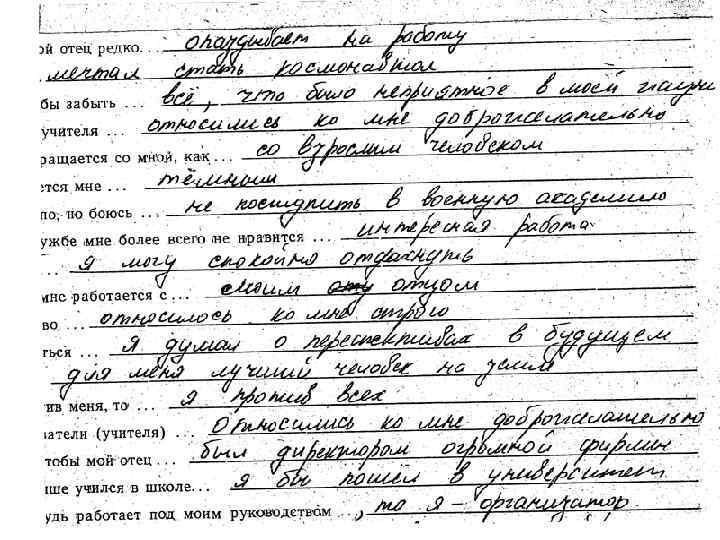 ой отец редко... опаздывает на работу
мечтал стать космонавтом
бы забыть ... всё, что было неприятное в моей жизни
учителя ... относились ко мне доброжелательно
ращается со мной, как ... со взрослым человеком
ется мне ... тёмным
но боюсь ... не поступить в военную академию
ужбе мне более всего не нравится ... интересная работа
... я могу спокойно отдохнуть
мне работается с ... своим отцом
во ... относилось ко мне строго
ться ... я думал о перспективах в будущем
для меня лучший человек на земле
ив меня, то ... я против всех
атели (учителя) ... относились ко мне доброжелательно
тобы мой отец ... был директором огромной фирмы
ше учился в школе... я бы пошёл в университет
удь работает под моим руководством ..., то я – организатор